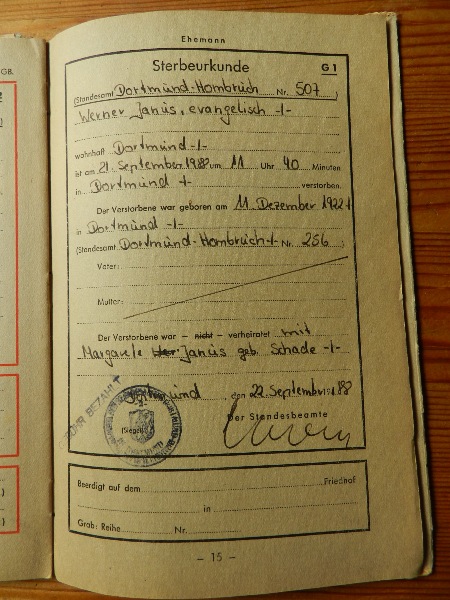 GB.
Ehemann
Sterbeurkunde G 1
(Standesamt Dortmund-Hombruch Nr. 507 )
Werner Janus, evangelisch -/-
wohnhaft Dortmund -/-
ist am 21. September 1988 um 11 Uhr 40 Minuten
in Dortmund -/- verstorben.
Der Verstorbene war geboren am 11. Dezember 1922
in Dortmund -/-
(Standesamt Dortmund-Hombruch-/- Nr. 256 )
Vater:
Mutter:
Der Verstorbene war — nicht — verheiratet mit
Margarete Janus geb. Schade -/-
Dortmund, den 22. September 1988
GEBÜHR BEZAHLT
(Siegel)
Der Standesbeamte
Beerdigt auf dem Friedhof
in
Grab: Reihe Nr.
— 15 —